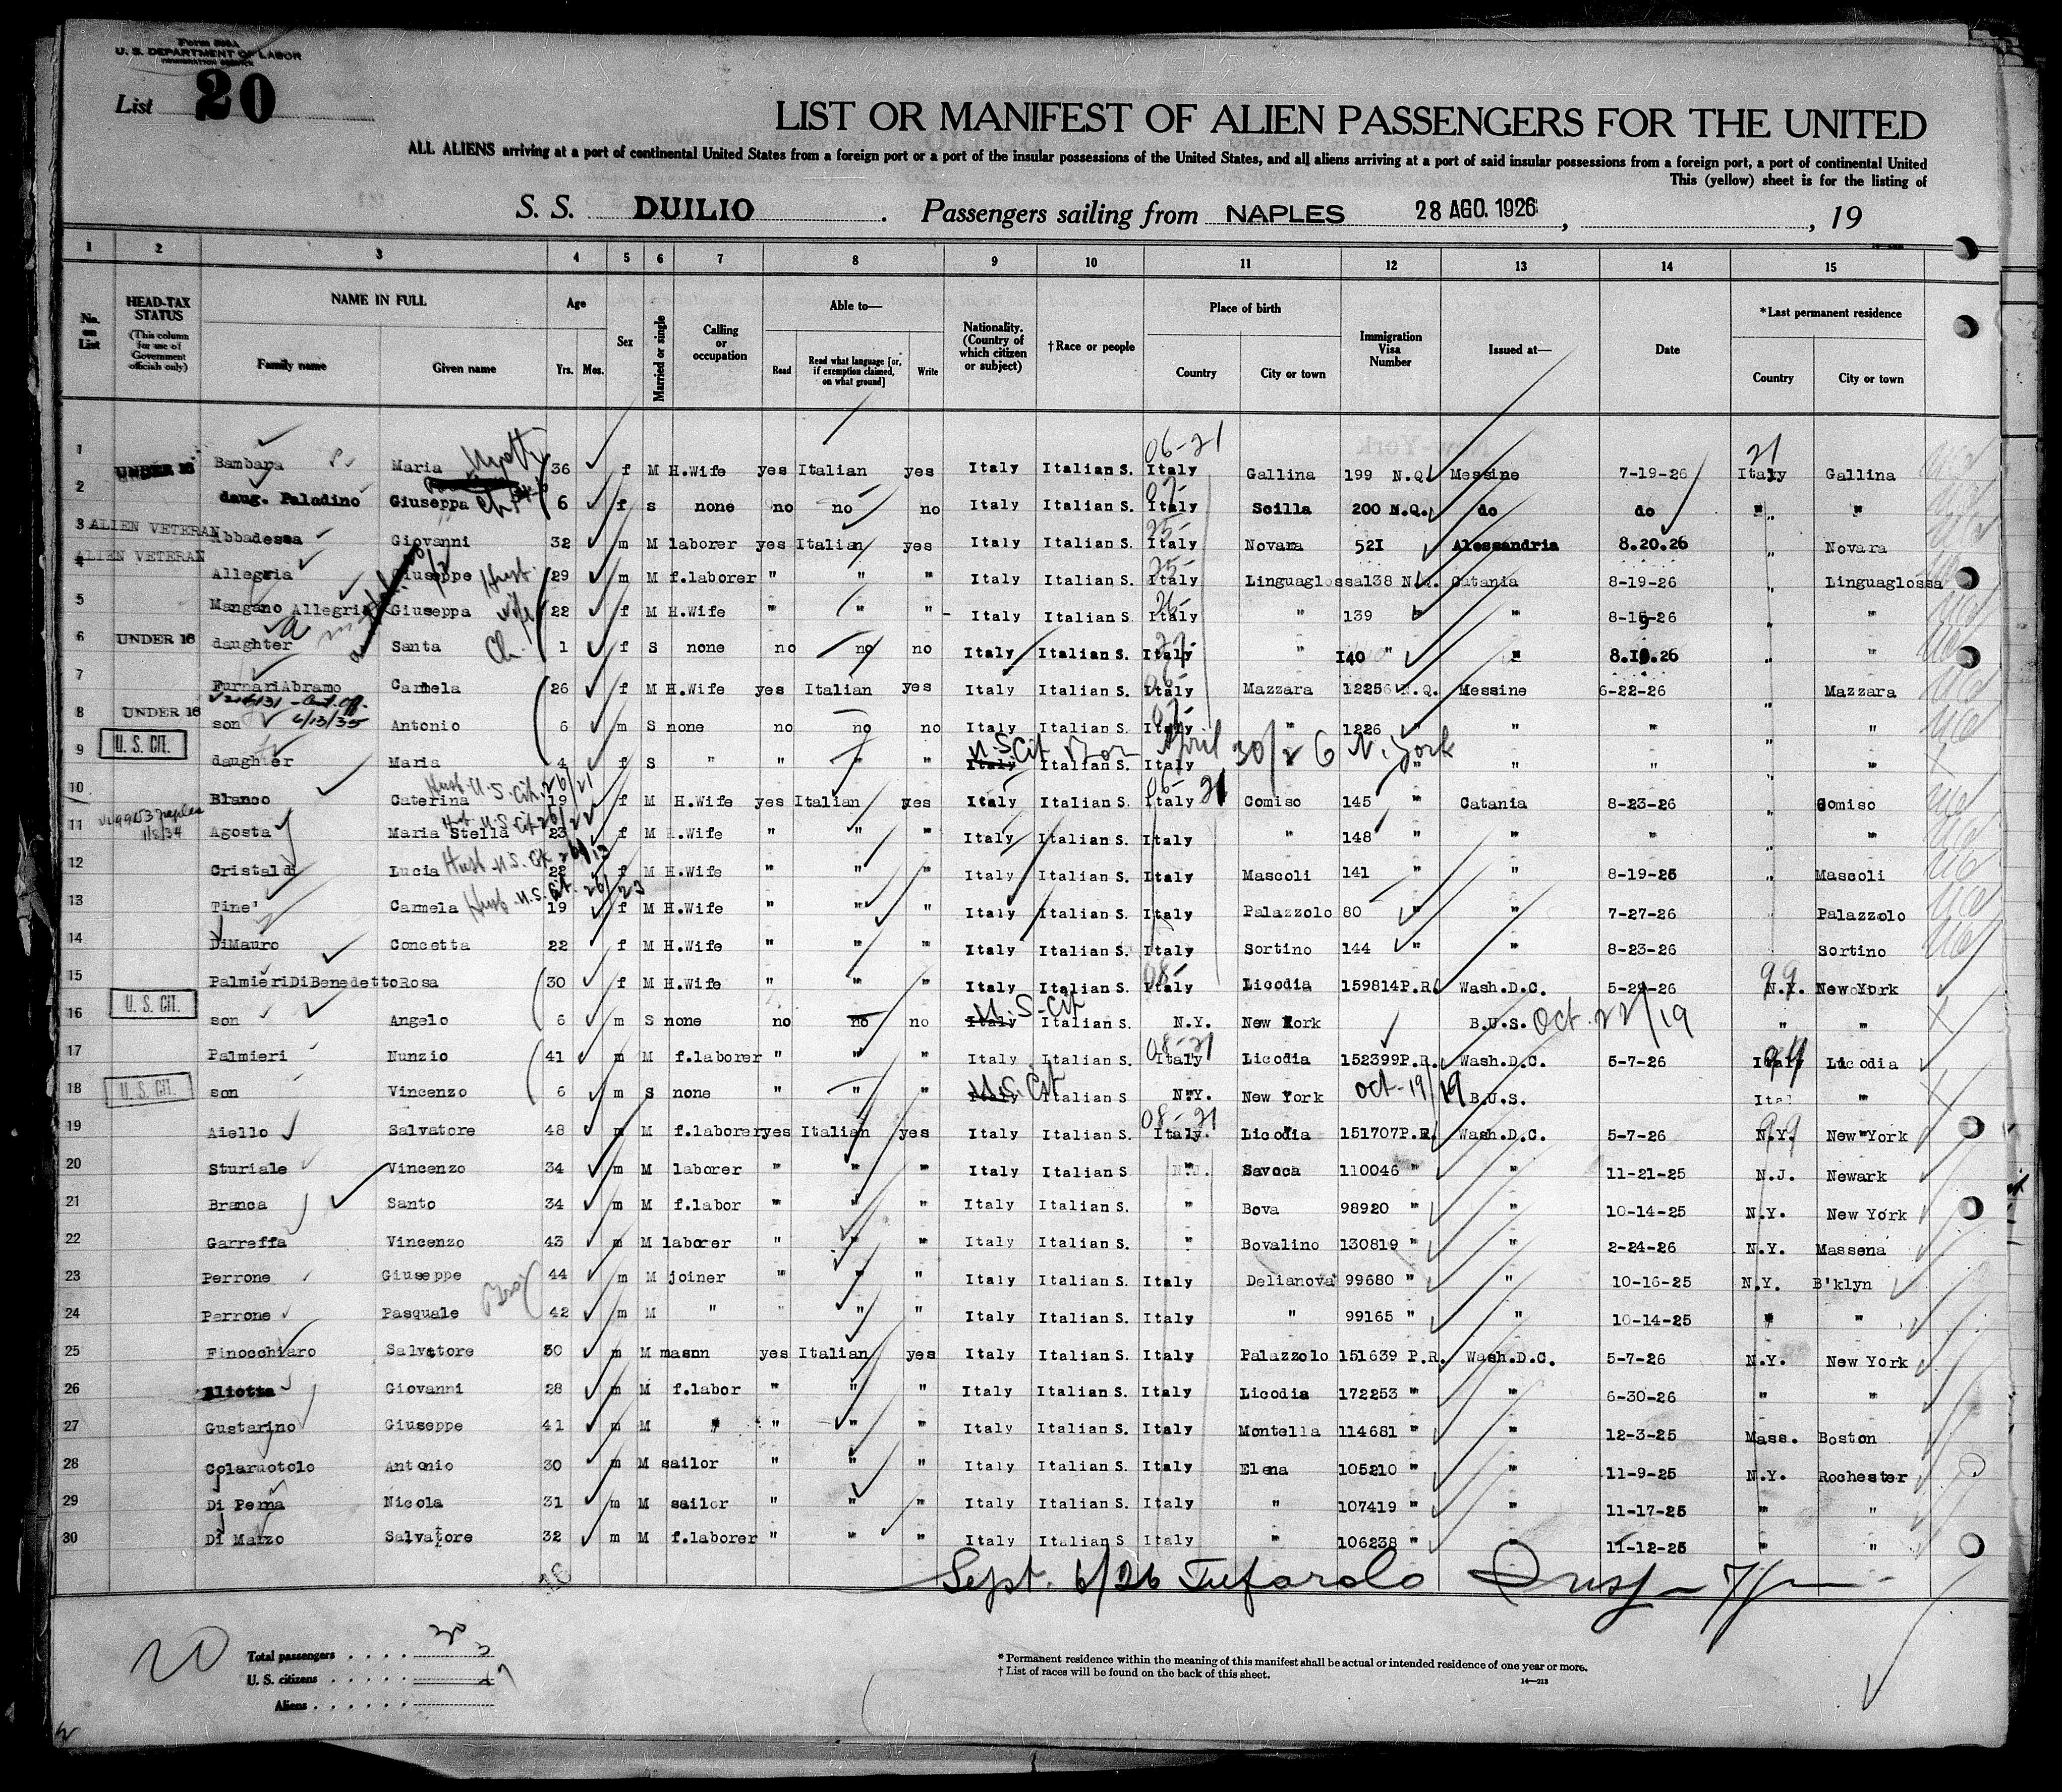 Form 500A
U. S. DEPARTMENT OF LABOR
IMMIGRATION SERVICE
List 20
LIST OR MANIFEST OF ALIEN PASSENGERS FOR THE UNITED
ALL ALIENS arriving at a port of continental United States from a foreign port or a port of the insular possessions of the United States, and all aliens arriving at a port of said insular possessions from a foreign port, a port of continental United
This (yellow) sheet is for the listing of
S. S. DUILIO. Passengers sailing from NAPLES 28 AGO. 1926, , 19
1 2 3 4 5 6 7 8 9 10 11 12 13 14 15
No. on List
HEAD-TAX STATUS (This column for use of Government officials only)
NAME IN FULL Family name Given name
Age Yrs. Mos.
Sex
Married or single
Calling or occupation
Able to— Read Read what language [or, if exemption claimed, on what ground] Write
Nationality. (Country of which citizen or subject)
†Race or people
Place of birth Country City or town
Immigration Visa Number
Issued at—
Date
*Last permanent residence Country City or town
06-21 21
1 UNDER 16 Bambara Maria 36 f M H.Wife yes Italian yes Italy Italian S. Italy Gallina 199 N.Q. Messine 7-19-26 Italy Gallina
2 daug. Paladino Giuseppa 6 f s none no no no Italy Italian S. Italy Scilla 200 N.Q. do do " "
3 ALIEN VETERAN Abbadessa Giovanni 32 m M laborer yes Italian yes Italy Italian S. Italy Novara 521 Alessandria 8.20.26 " Novara
4 ALIEN VETERAN Allegria Giuseppe Hust 29 m M f.laborer " " " Italy Italian S. Italy Linguaglossa 138 N.Q. Catania 8-19-26 " Linguaglossa
5 Mangano Allegria Giuseppa wife 22 f M H.Wife " " " Italy Italian S. Italy " 139 " " 8-19-26 " "
6 UNDER 16 daughter Santa Ch. 1 f S none no no no Italy Italian S. Italy " 140 " " 8.19.26 " "
7 Furnari Abramo Carmela 26 f M H.Wife yes Italian yes Italy Italian S. Italy Mazzara 1225 N.Q. Messine 6-22-26 Mazzara
8 UNDER 16 son 6/13/35 Antonio 6 m S none no no no Italy Italian S. Italy " 1226 " " " " "
9 U. S. CIT. daughter Maria 4 f S " " " Italy U.S. Cit Born April 30/26 N. York Italian S. Italy " " " " "
10 Blanco Caterina Husb U.S. Cit. 26/21 19 f M H.Wife yes Italian yes Italy Italian S. Italy Comiso 145 " Catania 8-23-26 " Comiso
11 1/8/34 Agosta Maria Stella Hust U.S Cit 26/22 23 f M H.Wife " " " Italy Italian S. Italy " 148 " " " " "
12 Cristaldi Lucia Husb U.S. Cit 22 f M H.Wife " " " Italy Italian S. Italy Mascoli 141 " " 8-19-26 " Mascoli
13 Tine' Carmela Husb U.S. Cit. 26/23 19 f M H.Wife " " " Italy Italian S. Italy Palazzolo 80 " " 7-27-26 Palazzolo
14 DiMauro Concetta 22 f M H.Wife " " " Italy Italian S. Italy Sortino 144 " " 8-23-26 Sortino
15 Palmieri DiBenedetto Rosa 30 f M H.Wife " " " Italy Italian S. Italy Licodia 159814 P.R. Wash.D.C. 5-29-26 N.Y. New York
16 U. S. CIT. son Angelo 6 m S none no no no Italy U.S-Cit Italian S. N.Y. New York B.U.S. Oct. 22/19 " "
17 Palmieri Nunzio 41 m M f.laborer " " " Italy Italian S. Italy 08-21 Licodia 152399 P.R. Wash.D.C. 5-7-26 Italy Licodia
18 U. S. CIT. son Vincenzo 6 m S none " " " Italy U.S. Cit Italian S N.Y. New York Oct-19/19 B.U.S. Ital "
19 Aiello Salvatore 48 m M f.laborer yes Italian yes Italy Italian S. Italy. 08-21 Licodia 151707 P.R. Wash.D.C. 5-7-26 N.Y. New York
20 Sturiale Vincenzo 34 m M laborer " " " Italy Italian S " Savoca 110046 " " 11-21-25 N.J. Newark
21 Branca Santo 34 m M f.labor " " " Italy Italian S. " Bova 98920 " " 10-14-25 N.Y. New York
22 Garreffa Vincenzo 43 m M laborer " " " Italy Italian S. " Bovalino 130819 " " 2-24-26 N.Y. Massena
23 Perrone Giuseppe 44 m M joiner " " " Italy Italian S. Italy Delianova 99680 " " 10-16-25 N.Y. B'klyn
24 Perrone Pasquale 42 m M " " " " Italy Italian S. Italy " 99165 " " 10-14-25 " "
25 Finocchiaro Salvatore 50 m M mason yes Italian yes Italy Italian S. Italy Palazzolo 151639 P.R. Wash.D.C. 5-7-26 N.Y. New York
26 Aliotta Giovanni 28 m M f.labor " " " Italy Italian S. Italy Licodia 172253 " " 6-30-26 " "
27 Gustarino Giuseppe 41 m M " " " " Italy Italian S. Italy Montella 114681 " " 12-3-25 Mass. Boston
28 Colaruotolo Antonio 30 m M sailor " " " Italy Italian S. Italy Elena 105210 " " 11-9-25 N.Y. Rochester
29 Di Perna Nicola 31 m M sailor " " " Italy Italian S. Italy " 107419 " " 11-17-25 " "
30 Di Marzo Salvatore 32 m M f.laborer " " " Italy Italian S Italy " 106238 " " 11-12-25 " "
Sept. 6/26 Tufarolo
Total passengers . . . . 30
U. S. citizens . . . . . 3
Aliens . . . . . . 27
* Permanent residence within the meaning of this manifest shall be actual or intended residence of one year or more.
† List of races will be found on the back of this sheet.
14—213